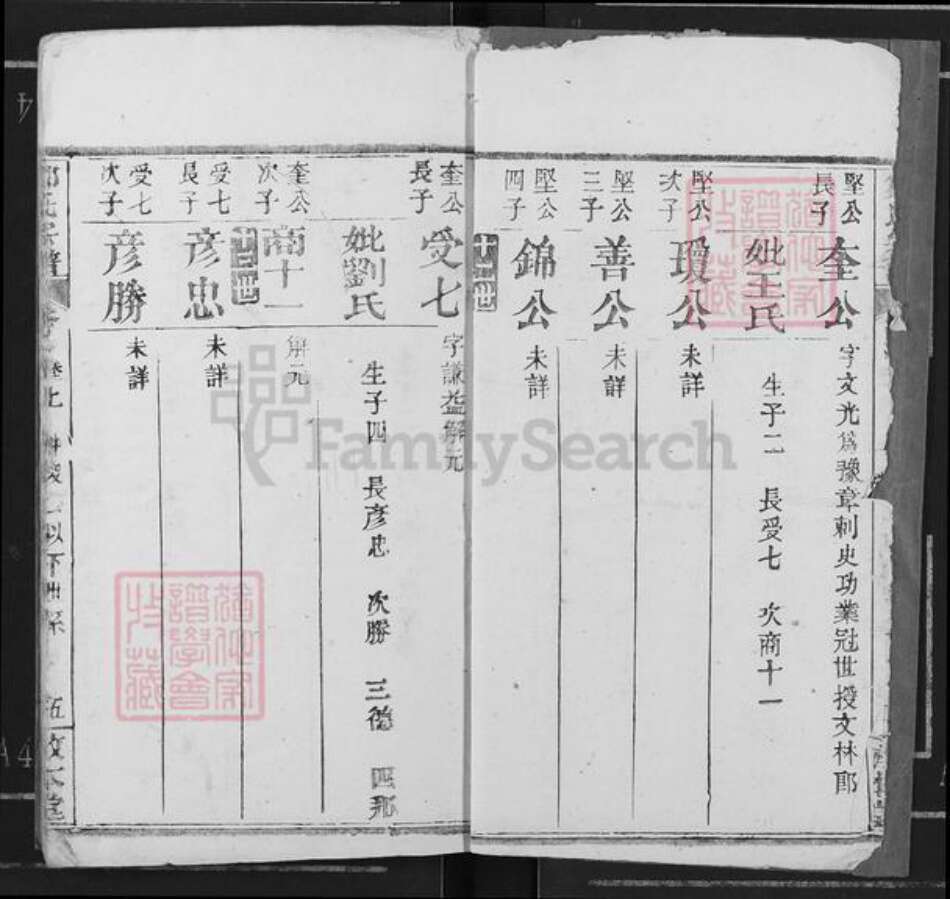 堅公長子
奎公
字文光爲豫章刺史功業冠世授文林郎
妣王氏
生子二 長受七 次商十一
堅公次子
瓊公
未詳
堅公三子
善公
未詳
堅公四子
錦公
未詳
奎公長子
受七
字謙益解元
妣劉氏
生子四 長彥忠 次勝 三德 四那
奎公次子
商十一
解元
受七長子
彥忠
未詳
受七次子
彥勝
未詳
以下世系
伍
FamilySearch